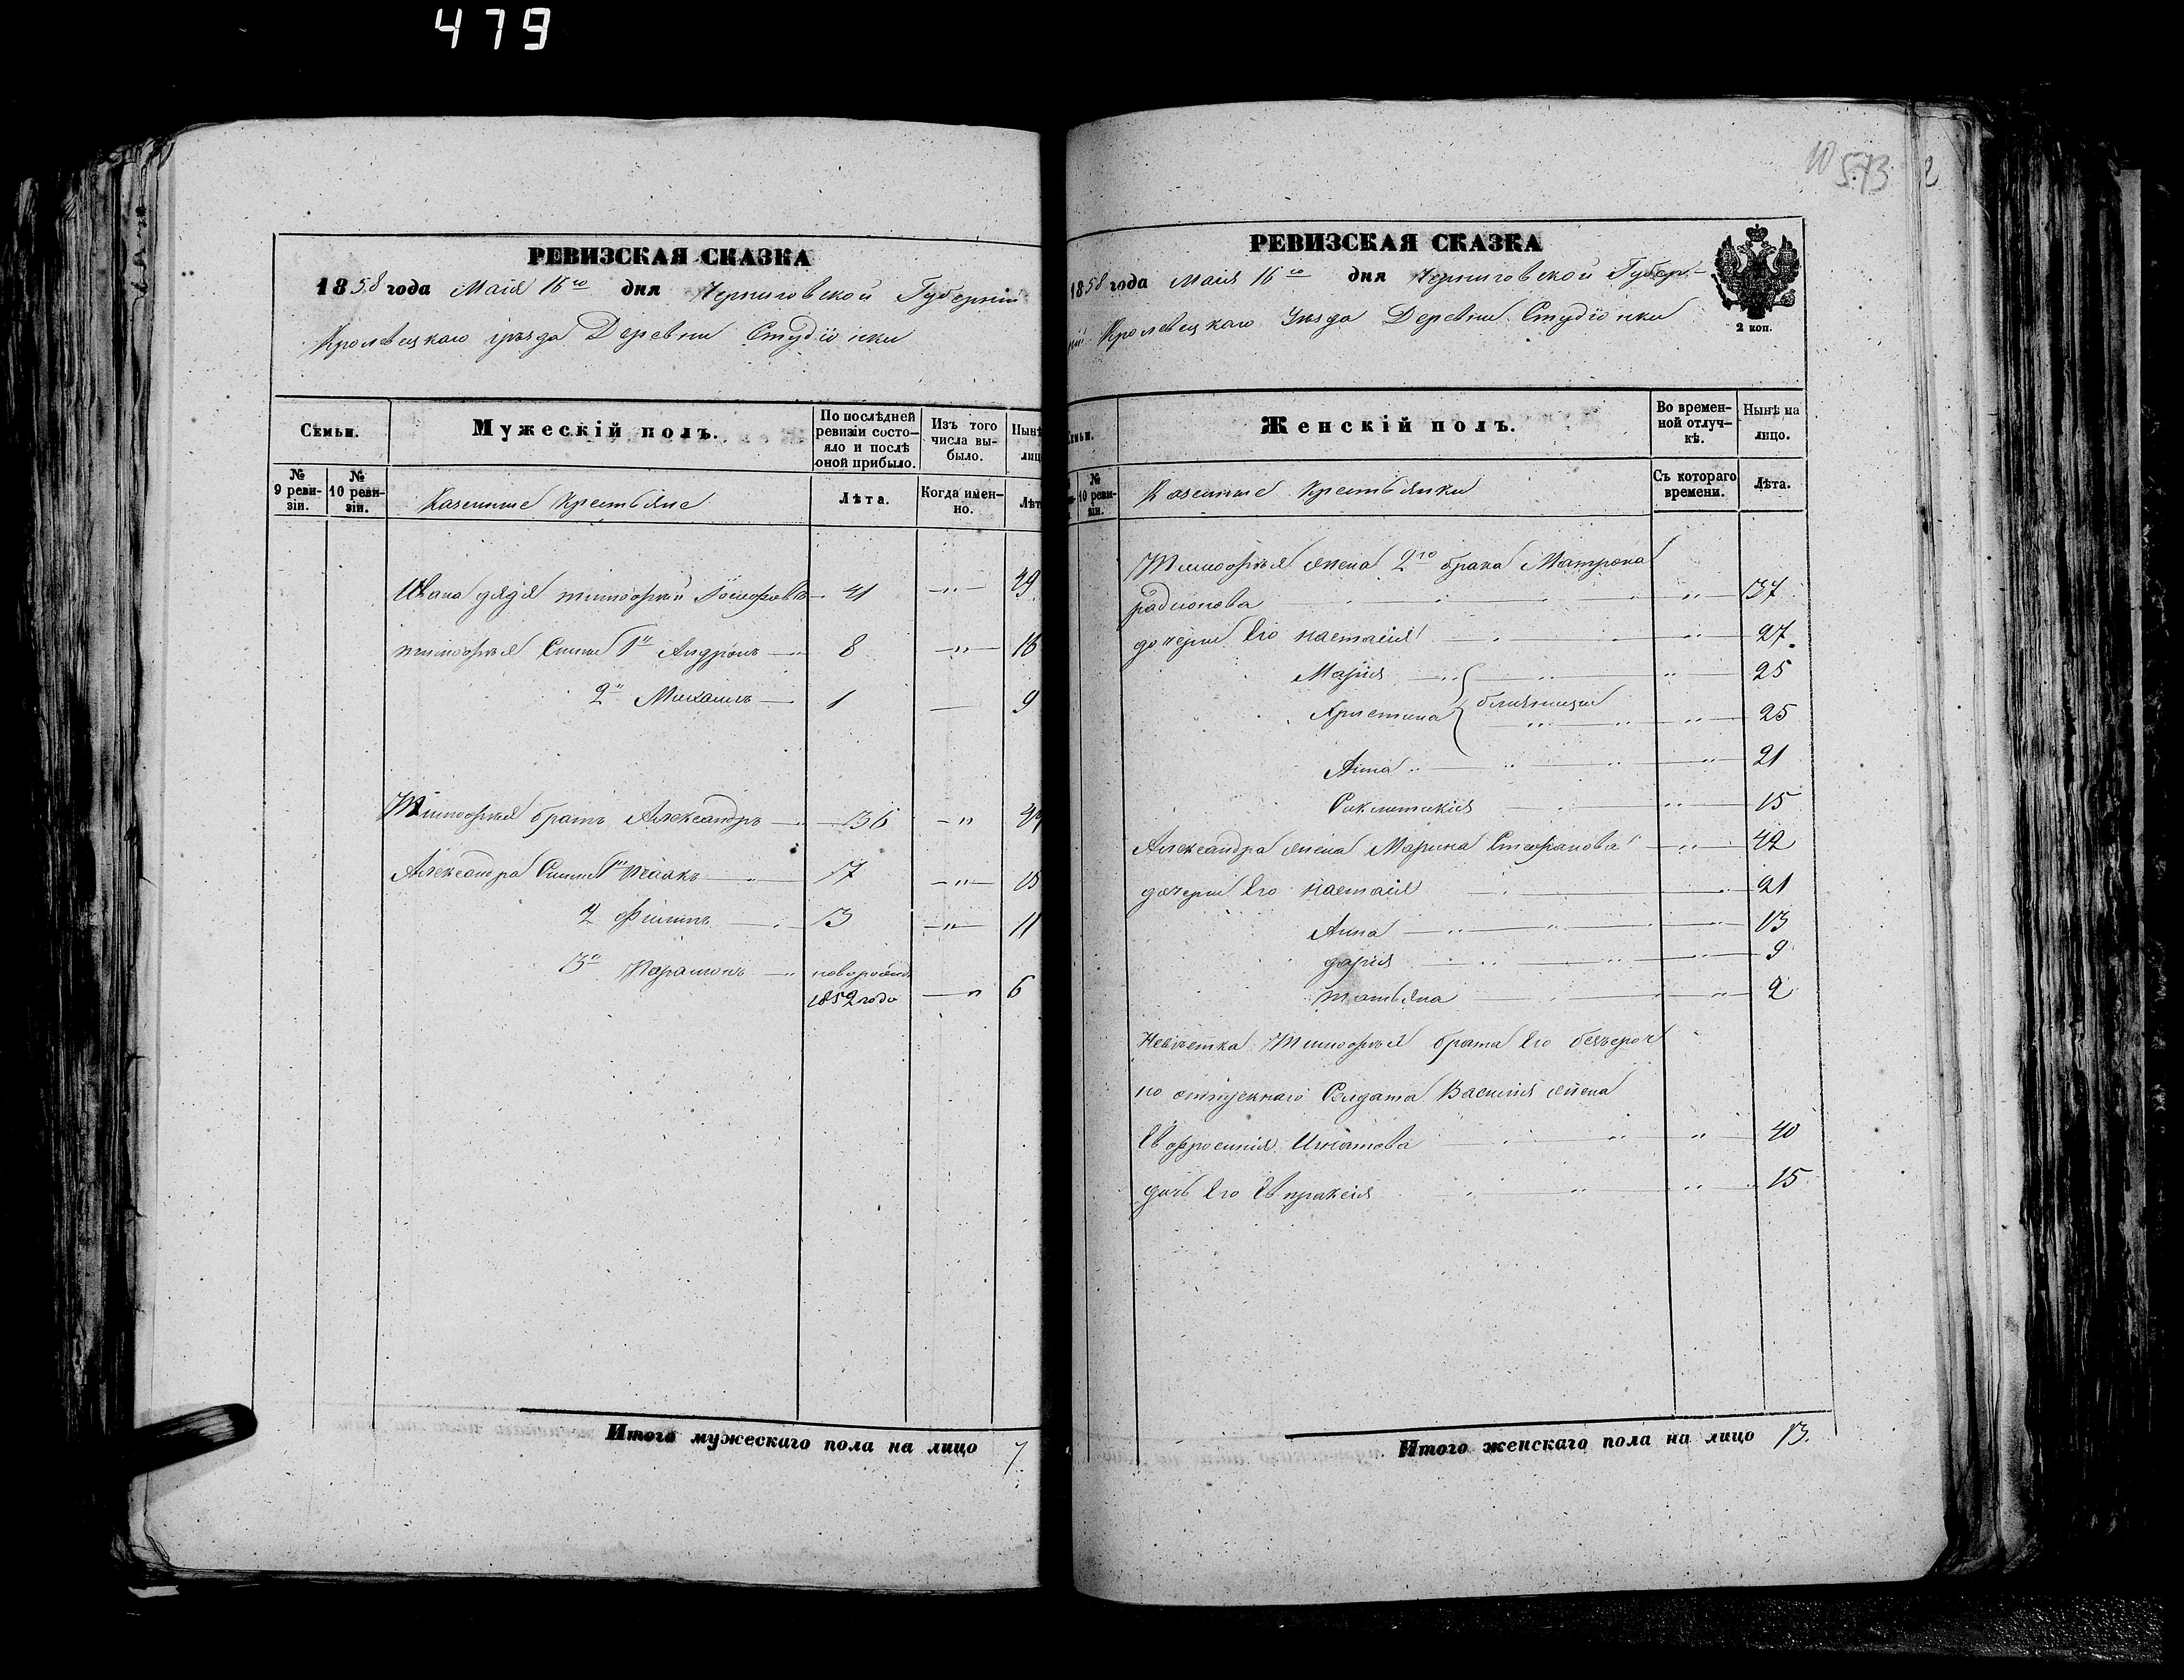 479
РЕВИЗСКАЯ СКАЗКА
1858 года Маія 16го дня Черниговской Губерніи
Кролевецкаго уѣзда Деревни Студіонки
Семьи.
Мужескій полъ.
По послѣдней ревизіи состояло и послѣ оной прибыло.
Изъ того числа выбыло.
Нынѣ лиц
№ 9 ревизіи.
№ 10 ревизіи.
Казенные Крестьяне
Лѣта.
Когда именно.
Лѣт
Ивана дядя Тимофѣй 41 " 49
Тимофѣя Сыны 1й Андронъ 8 " 16
2й Михаилъ 1 9
Тимофѣя братъ Александръ 36 "
Александра Сыны 1й Исаакъ 7 " 15
2 Филипъ 3 " 11
3й Парамонъ новорожд
1852 года " 6
Итого мужескаго пола на лицо 7.
10 573 2
РЕВИЗСКАЯ СКАЗКА
1858 года Маія 16го дня Черниговской Губер-
ніи Кролевецкаго Уѣзда Деревни Студіонки
2 коп.
Семьи.
Женскій полъ.
Во временной отлучкѣ.
Нынѣ на лицо.
№ 10 ревизіи.
Казенные Крестьянки
Съ котораго времени.
Лѣта.
Тимофѣя жена 2го брака Матрона
радионова " 37
дочери Его настасія " 27
Марія " 25
Христина близницы " 25
Анна " 21
" 15
Александра жена Марина Стефанова " 42
дочери Его настасія 21
Анна " 13
дарія " 9
татьяна " 2
Невѣстка Тимофѣя брата Его безсроч
но отпускнаго Солдата Василія жена
Евфросинія Игнатова " 40
дочь Его Евпраксія " 15
Итого женскаго пола на лицо 13.